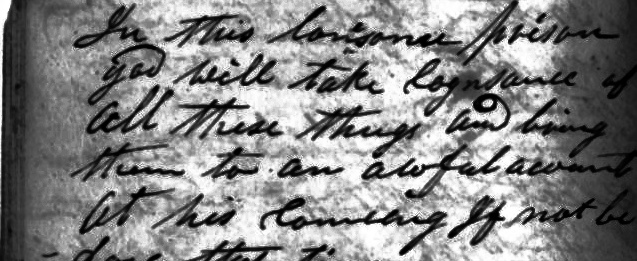 In this lonsonce prison
god will take Cognsance of
all these things and bring
them to an awful acount
At his Comeing If not be
fore that